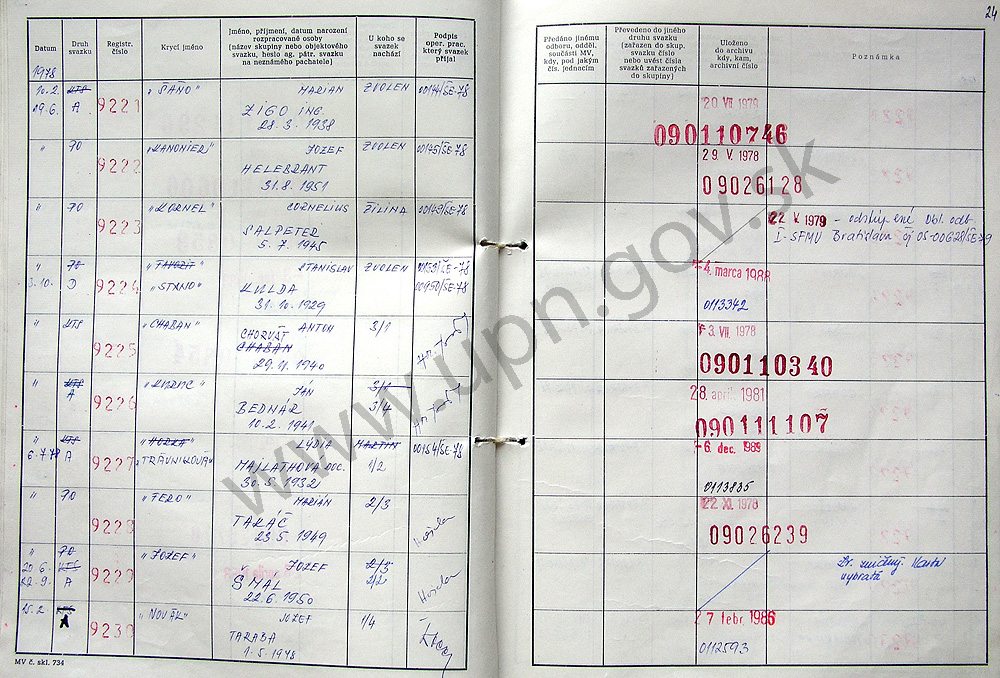 24
Datum
Druh svazku
Registr. číslo
Krycí jméno
Jméno, příjmení, datum narození rozpracované osoby (název skupiny nebo objektového svazku, heslo ag. pátr. svazku na neznámého pachatele)
U koho se svazek nachází
Podpis oper. prac. který svazek přijal
Předáno jinému odboru, odděl. součásti MV, kdy, pod jakým čís. jednacím
Převedeno do jiného druhu svazku (zařazen do skup. svazku číslo nebo uvést čísla svazků zařazených do skupiny)
Uloženo do archivu kdy, kam, archivní číslo
Poznámka
1978
10.2. KTS 9221 "ŠÁŇO" MARIAN ZVOLEN
29.6. A ZIGO ING.
28.3. 1938
20 VII 1979
090110746
" PO 9222 "KANONIER" JOZEF ZVOLEN
HELEBRANT
31.8. 1951
29. V. 1978
09026128
" PO 9223 "KORNEL" CORNELIUS ŽILINA
SALPETER
5.7. 1945
22 V. 1979 - odstúpené Obl. odb.
I-SFMV Bratislava
" PO 9224 STANISLAV ZVOLEN
3.10. D "STANO" KULDA
31.10. 1929
-4. marca 1988
0113342
" KTS 9225 "CHABAN" ANTON 3/1
CHORVÁT
CHABAN
29.11. 1940
3. VII. 1978
090110340
" KTS 9226 JÁN 3/1
A BEDNÁR 3/4
10.2. 1941
28. apríl 1981
090111107
" KTS 9227 "HORKA" LÝDIA MARTIN 00154/ŠE-78
6.7.78 A "TRÁVNIKOVÁ" MAJLATHOVÁ DOC. 1/2
30.5. 1932
-6. dec. 1989
0113835
" PO 9228 "TERO" MARIÁN 2/3
TAKÁČ
23.5. 1949
22 XI. 1978
09026239
" PO 9229 "JOZEF" JOZEF 2/3
20.6. KTS SMAL 2/2
22.9. A 22.6. 1950
Zv. zničený. Karta
vybratá
15.2. KTS 9230 "NOVÁK" JOZEF 1/4
A TARABA
1.5. 1948
27 febr. 1986
0112593
MV č. skl. 734
www.upn.gov.sk